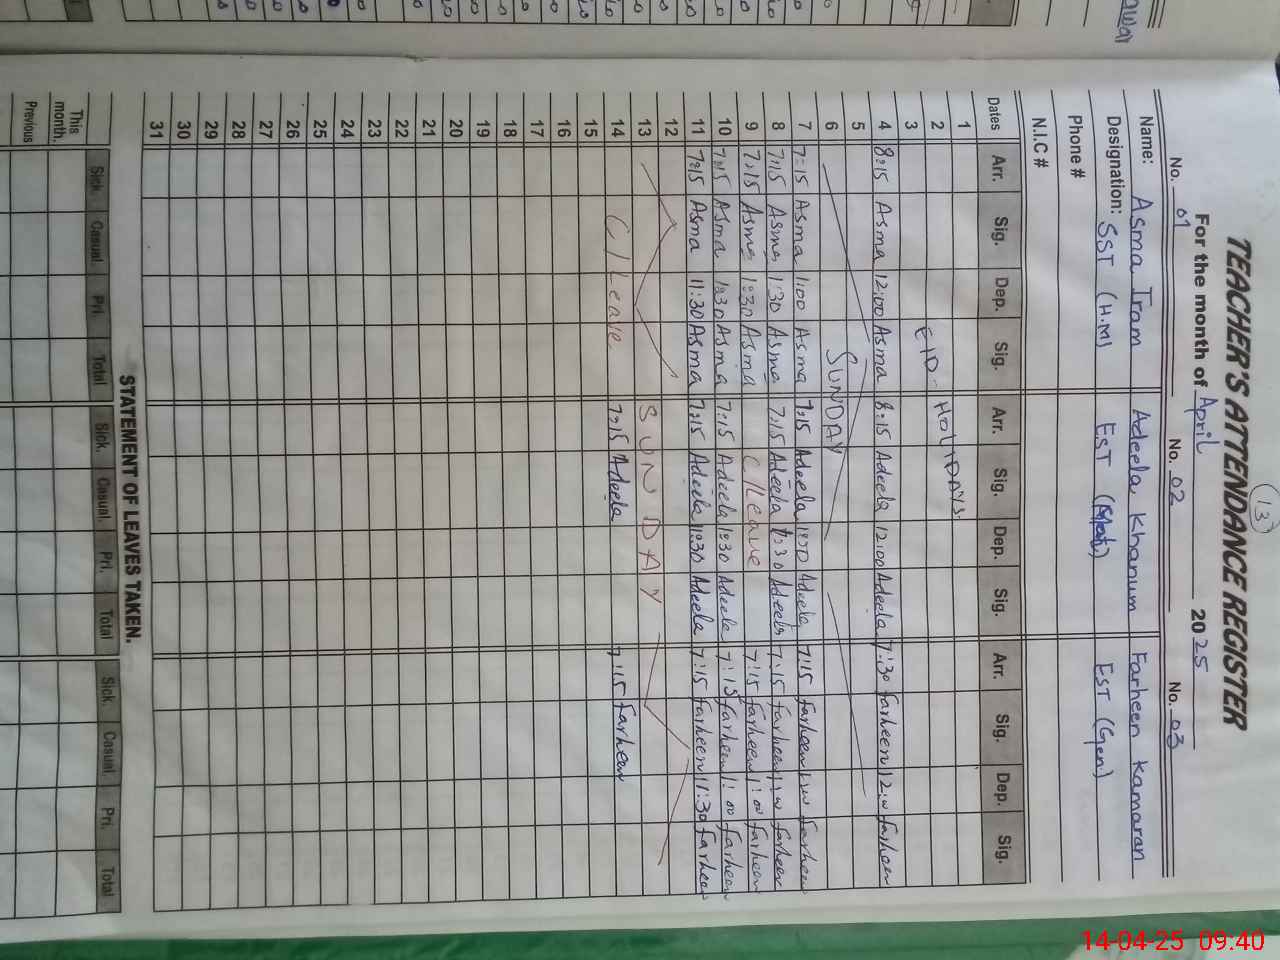 13
TEACHER'S ATTENDANCE REGISTER
For the month of April 2025
No. 01 No. 02 No. 03
Name: Asma Iram Adeela Khanum Farheen Kamaran
Designation: SST (H.M) EST EST (Gen)
Phone #
N.I.C #
Dates Arr. Sig. Dep. Sig. Arr. Sig. Dep. Sig. Arr. Sig. Dep. Sig.
1
2 EID HOLIDAYS
3
4 8:15 Asma 12:00 Asma 8:15 Adeela 12:00 Adeela 7:30 farheen 12:00 farheen
5
6 SUNDAY
7 7:15 Asma 1:00 Asma 7:15 Adeela 1:30 Adeela 7:15 farheen 1:00 farheen
8 7:15 Asma 1:30 Asma 7:15 Adeela 1:30 Adeela 7:15 farheen 1:00 farheen
9 7:15 Asma 1:30 Asma C/Leave 7:15 farheen 1:00 farheen
10 7:15 Asma 1:30 Asma 7:15 Adeela 1:30 Adeela 7:15 farheen 1:00 farheen
11 7:15 Asma 11:30 Asma 7:15 Adeela 11:30 Adeela 7:15 farheen 11:30 farheen
12
13 SUNDAY
14 C/Leave 7:15 Adeela 7:15 farheen
15
16
17
18
19
20
21
22
23
24
25
26
27
28
29
30
31
STATEMENT OF LEAVES TAKEN.
Sick. Casual. Pri Total Sick. Casual. Pri. Total Sick. Casual. Pri. Total
This month.
Previous
14-04-25 09:40